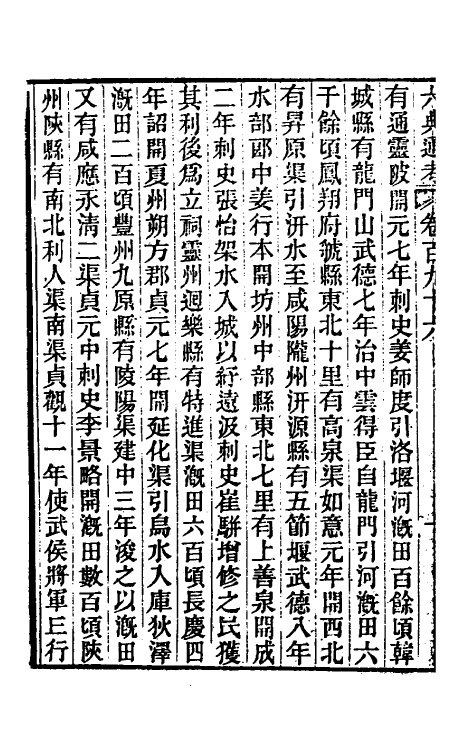 六典通考卷百九十六
有通靈陂開元七年刺史姜師度引洛堰河漑田百餘頃韓
城縣有龍門山武德七年治中雲得臣自龍門引河漑田六
千餘頃鳳翔府虢縣東北十里有高泉渠如意元年開西北
有昇原渠引汧水至咸陽隴州汧源縣有五節堰武德入年
水部郎中姜行本開坊州中部縣東北七里有上善泉開成
二年刺史張怡架水入城以紓遠汲刺史崔駢增修之民獲
其利後爲立祠靈州迴樂縣有特進渠漑田六百頃長慶四
年詔開夏州朔方郡貞元七年開延化渠引烏水入庫狄澤
漑田二百頃豐州九原縣有陵陽渠建中三年浚之以漑田
又有咸應永淸二渠貞元中刺史李景略開漑田數百頃陝
州陝縣有南北利人渠南渠貞觀十一年使武侯將軍王行